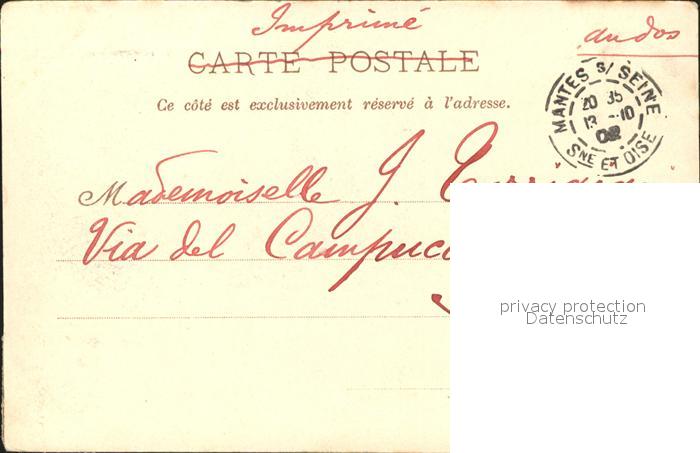 Imprimé
au dos
CARTE POSTALE
Ce côté est exclusivement réservé à l'adresse.
MANTES S/ SEINE
20 35
13 -10
02
SNE ET OISE
Mademoiselle J.
Via del
privacy protection
Datenschutz